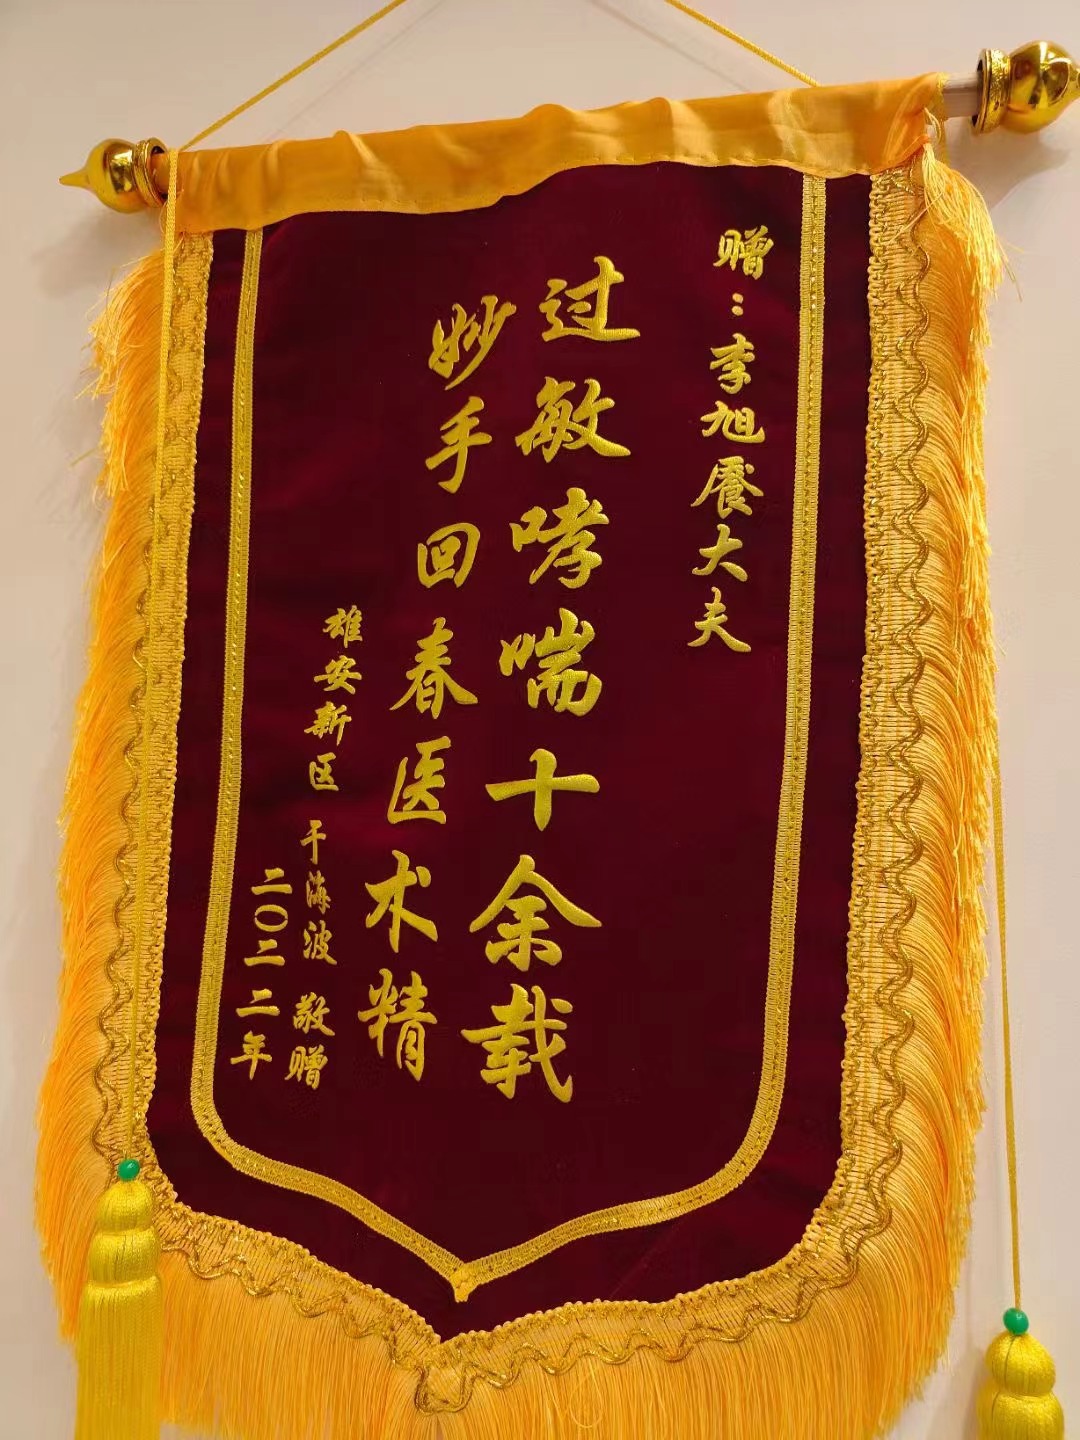 赠：李旭餍大夫
过敏哮喘十余载
妙手回春医术精
雄安新区 于海波 敬赠
二〇二二年